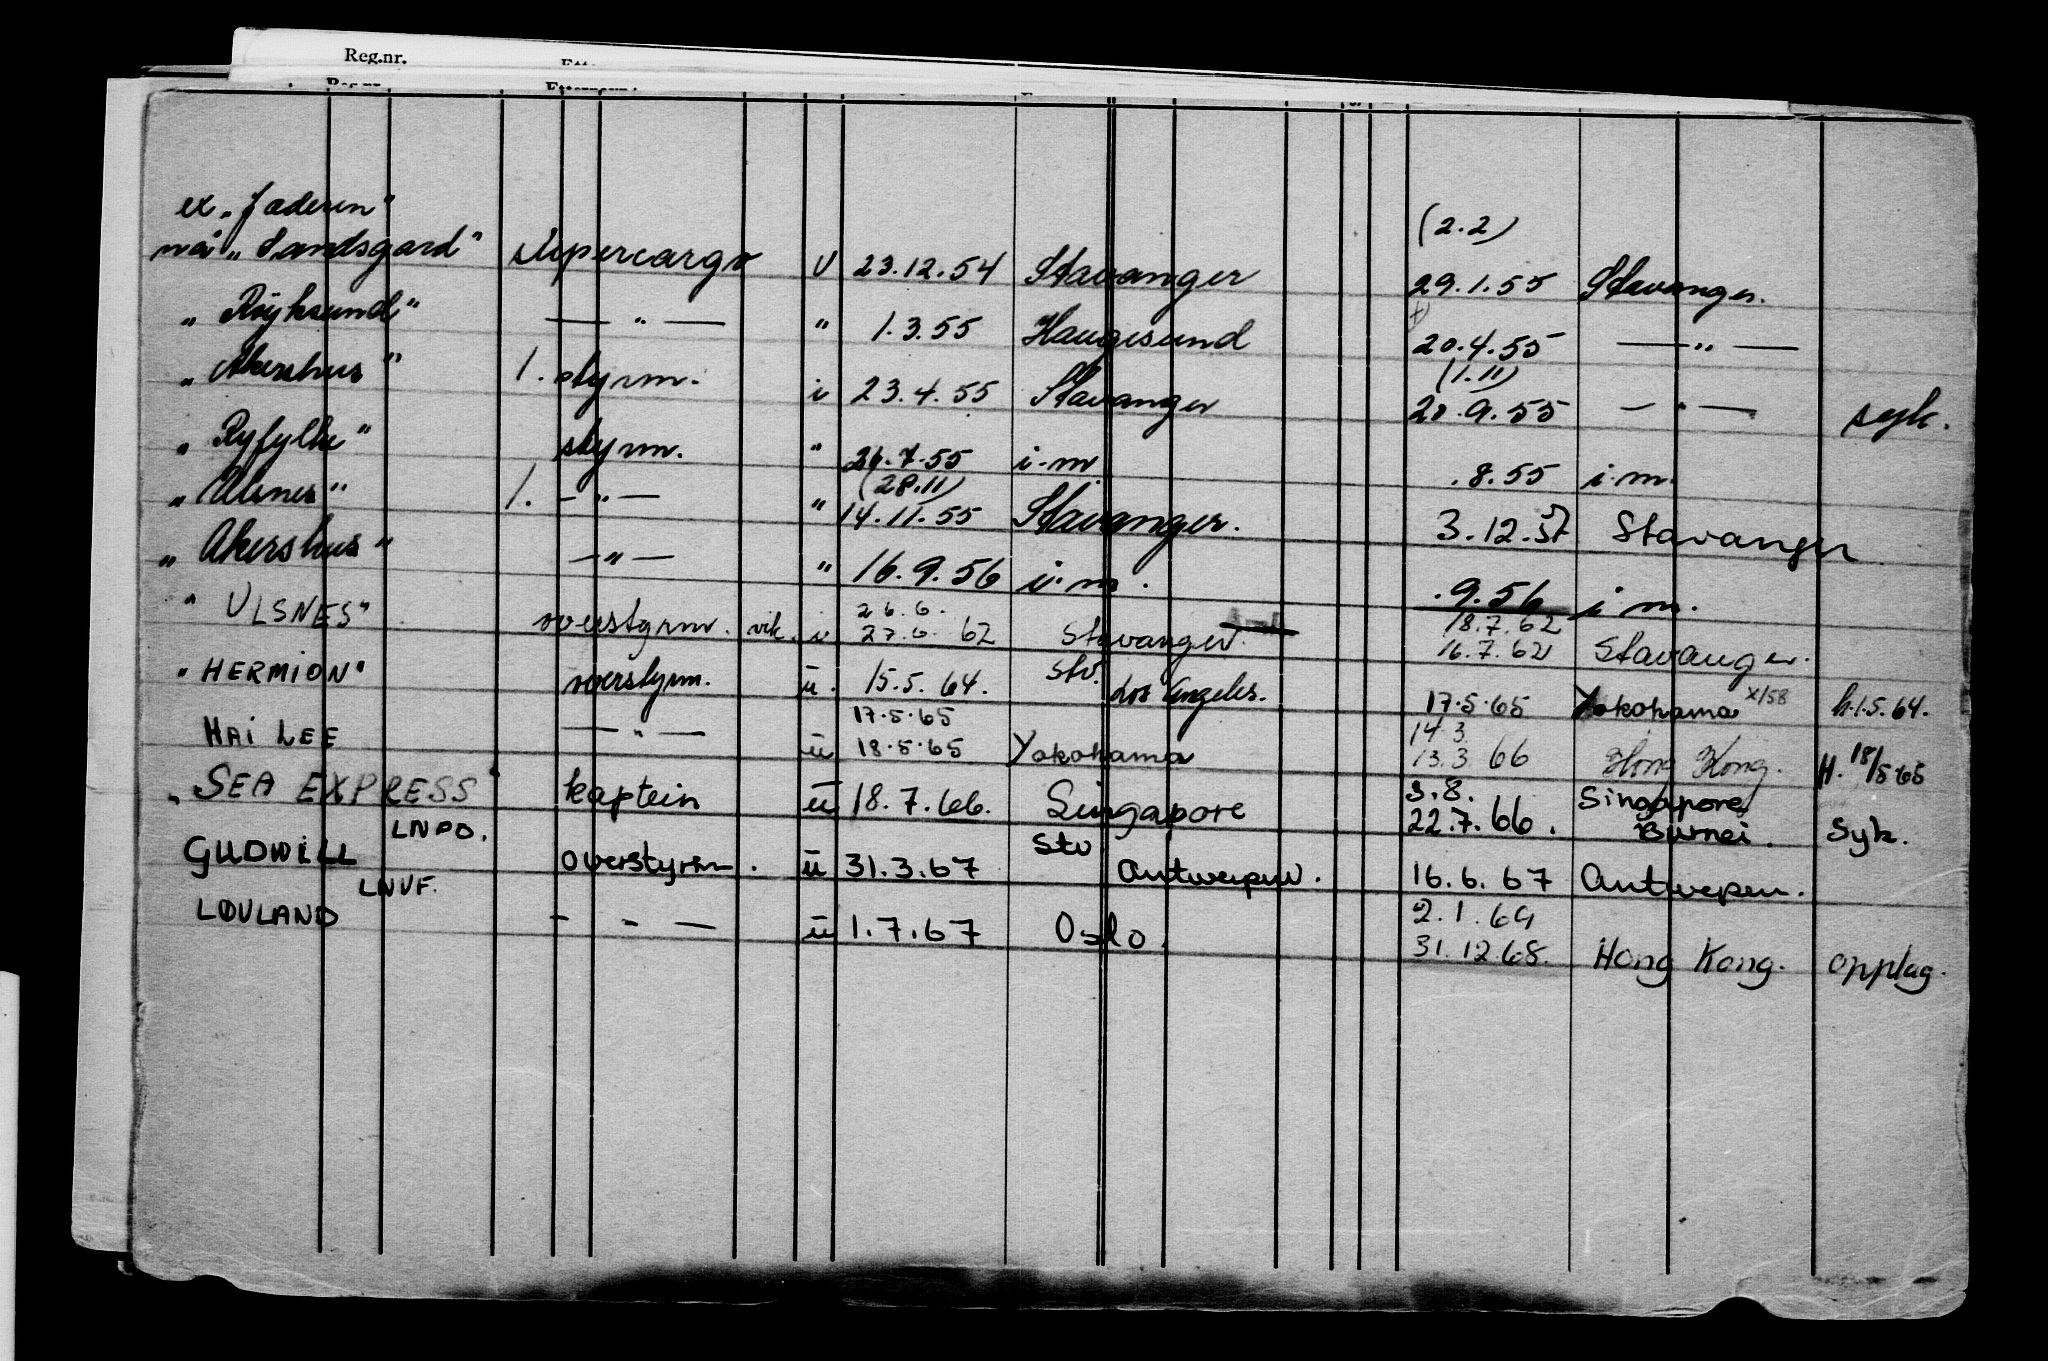 Reg.nr.
ex „Jæderen"
nå „Sandsgard" Supercargo U 23.12.54 Stavanger (2.2) 29.1.55 Stavanger.
„Røyksund" — " — " 1.3.55 Haugesund 20.4.55 — " —
„Akershus" 1. styrm. i 23.4.55 Stavanger (1.11) 20.9.55 — " — syk.
„Ryfylke" styrm. " 26.7.55 i.m .8.55 i.m.
„Ulsnes" 1. — " — " (28.11) 14.11.55 Stavanger. 3.12.57 Stavanger
„Akershus" — " — " 16.9.56 i.m. .9.56 i.m.
" ULSNES" overstyrm. vik. i 26.6. 27.6.62 Stavanger. 18.7.62 16.7.62 Stavanger.
"HERMION" overstyrm. u. 15.5.64. Stv. Los Angeles. 17.5.65 Yokohama x/58 h.1.5.64.
HAI LEE — " — u 17.5.65 18.5.65 Yokohama 14.3. 13.3.66 Hong Kong. H. 18/5-65
„SEA EXPRESS" kaptein u 18.7.66. Singapore 3.8. 22.7.66. Singapore Burnei. Syk.
LNPO.
GUDWILL overstyrm. u 31.3.67 Stv Antwerpen. 16.6.67 Antwerpen.
LNVF.
LØVLAND — - — u 1.7.67 Oslo. 2.1.69 31.12.68. Hong Kong. opplag.